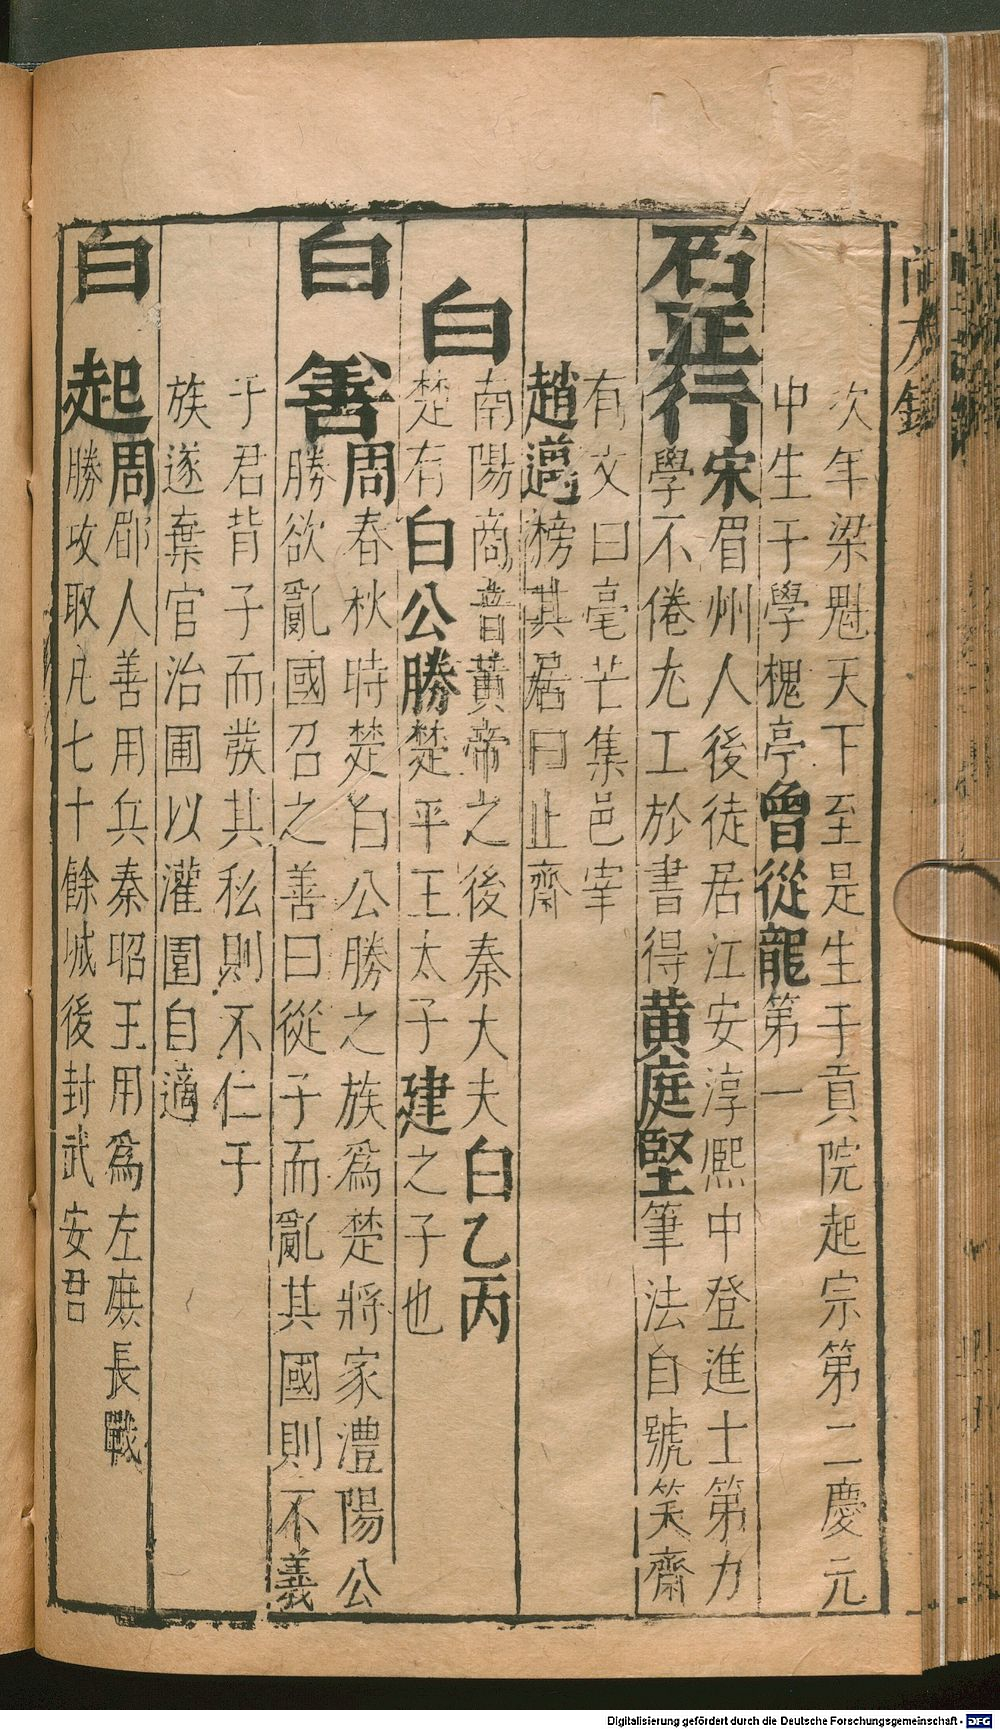 次年梁魁天下至是生于貢院起宗第二慶元
中生于學槐亭曾從龍第一
石延行宋眉州人後徒居江安淳熙中登進士第力
學不倦尢工於書得黃庭堅筆法自號笑齋
有文曰毫芒集邑宰
趙邁榜其居曰止齋
白
南陽商音黃帝之後秦大夫白乙丙
楚有白公勝楚平王太子建之子也
白善周春秋時楚白公勝之族為楚將家澧陽公
勝欲亂國召之善曰從子而亂其國則不義
于君背子而發其私則不仁于
族遂棄官治圃以灌園自適
白起周郿人善用兵秦昭王用為左庶長戰
勝攻取凡七十餘城後封武安君
Digitalisierung gefördert durch die Deutsche Forschungsgemeinschaft - DFG